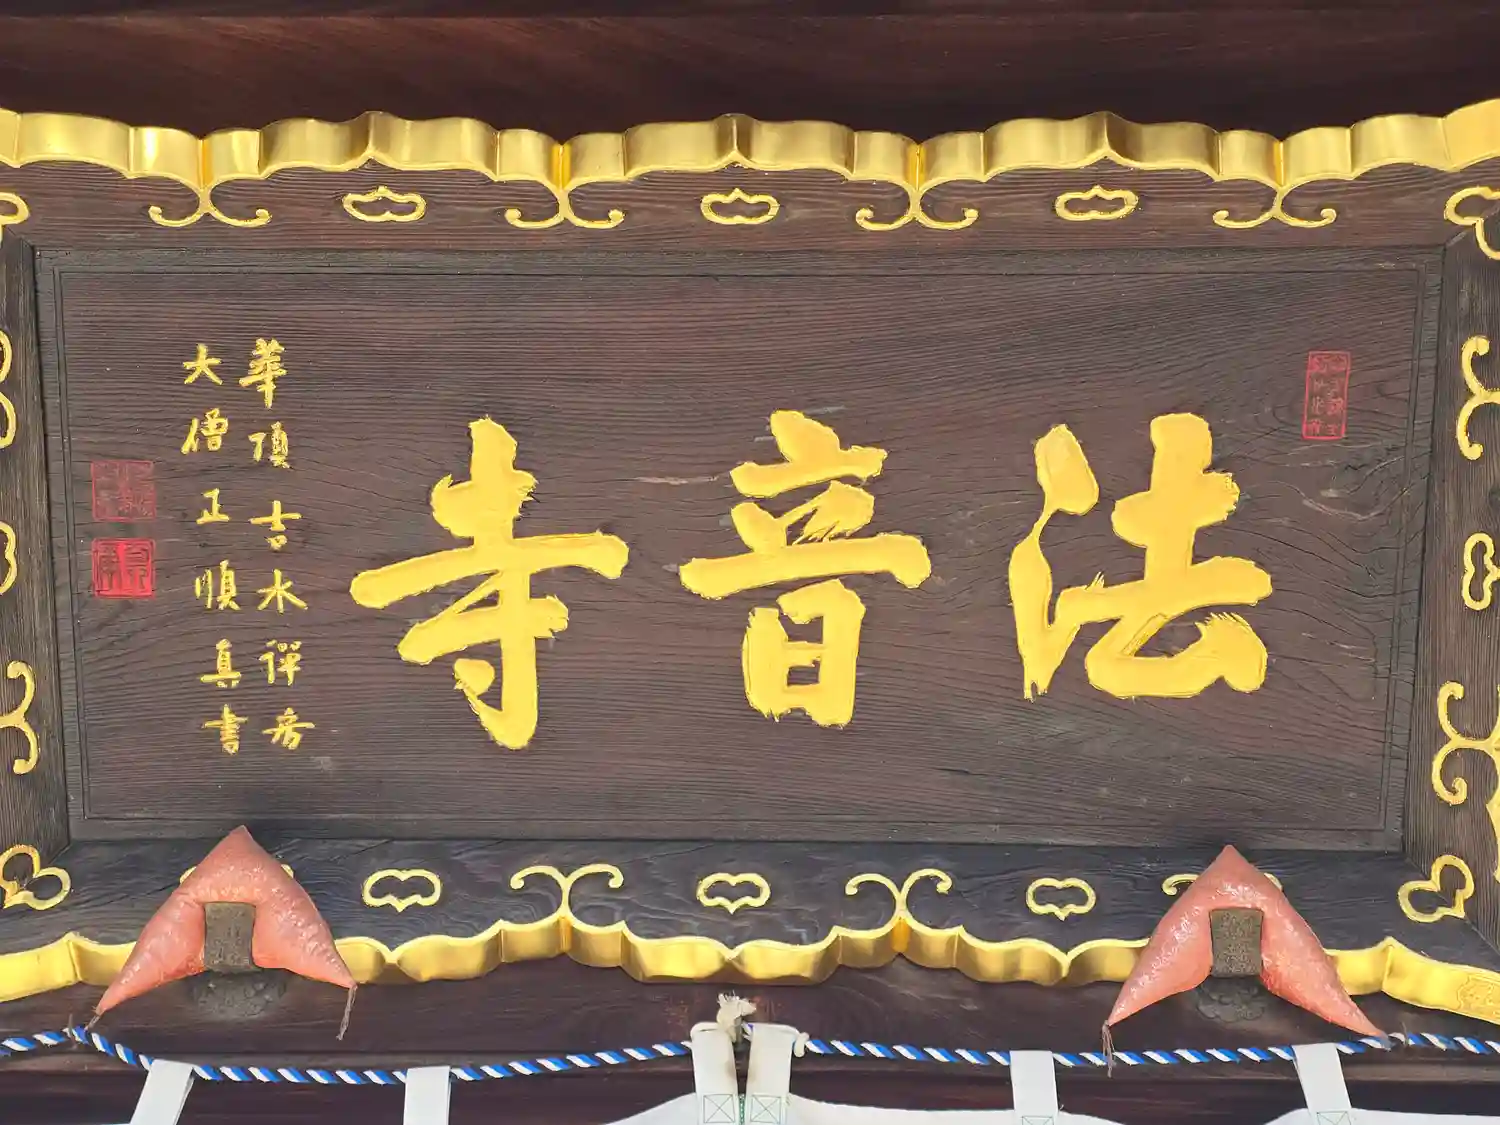 法音寺
華頂吉水禪房
大僧正順真書